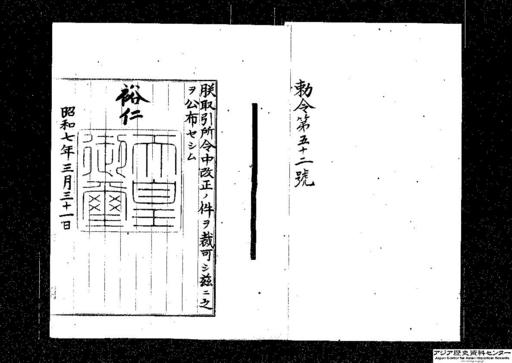 勅令第五十二號
朕取引所令中改正ノ件ヲ裁可シ茲ニ之
ヲ公布セシム
裕仁
天皇
御璽
昭和七年三月三十一日
アジア歴史資料センター
Japan Center for Asian Historical Records